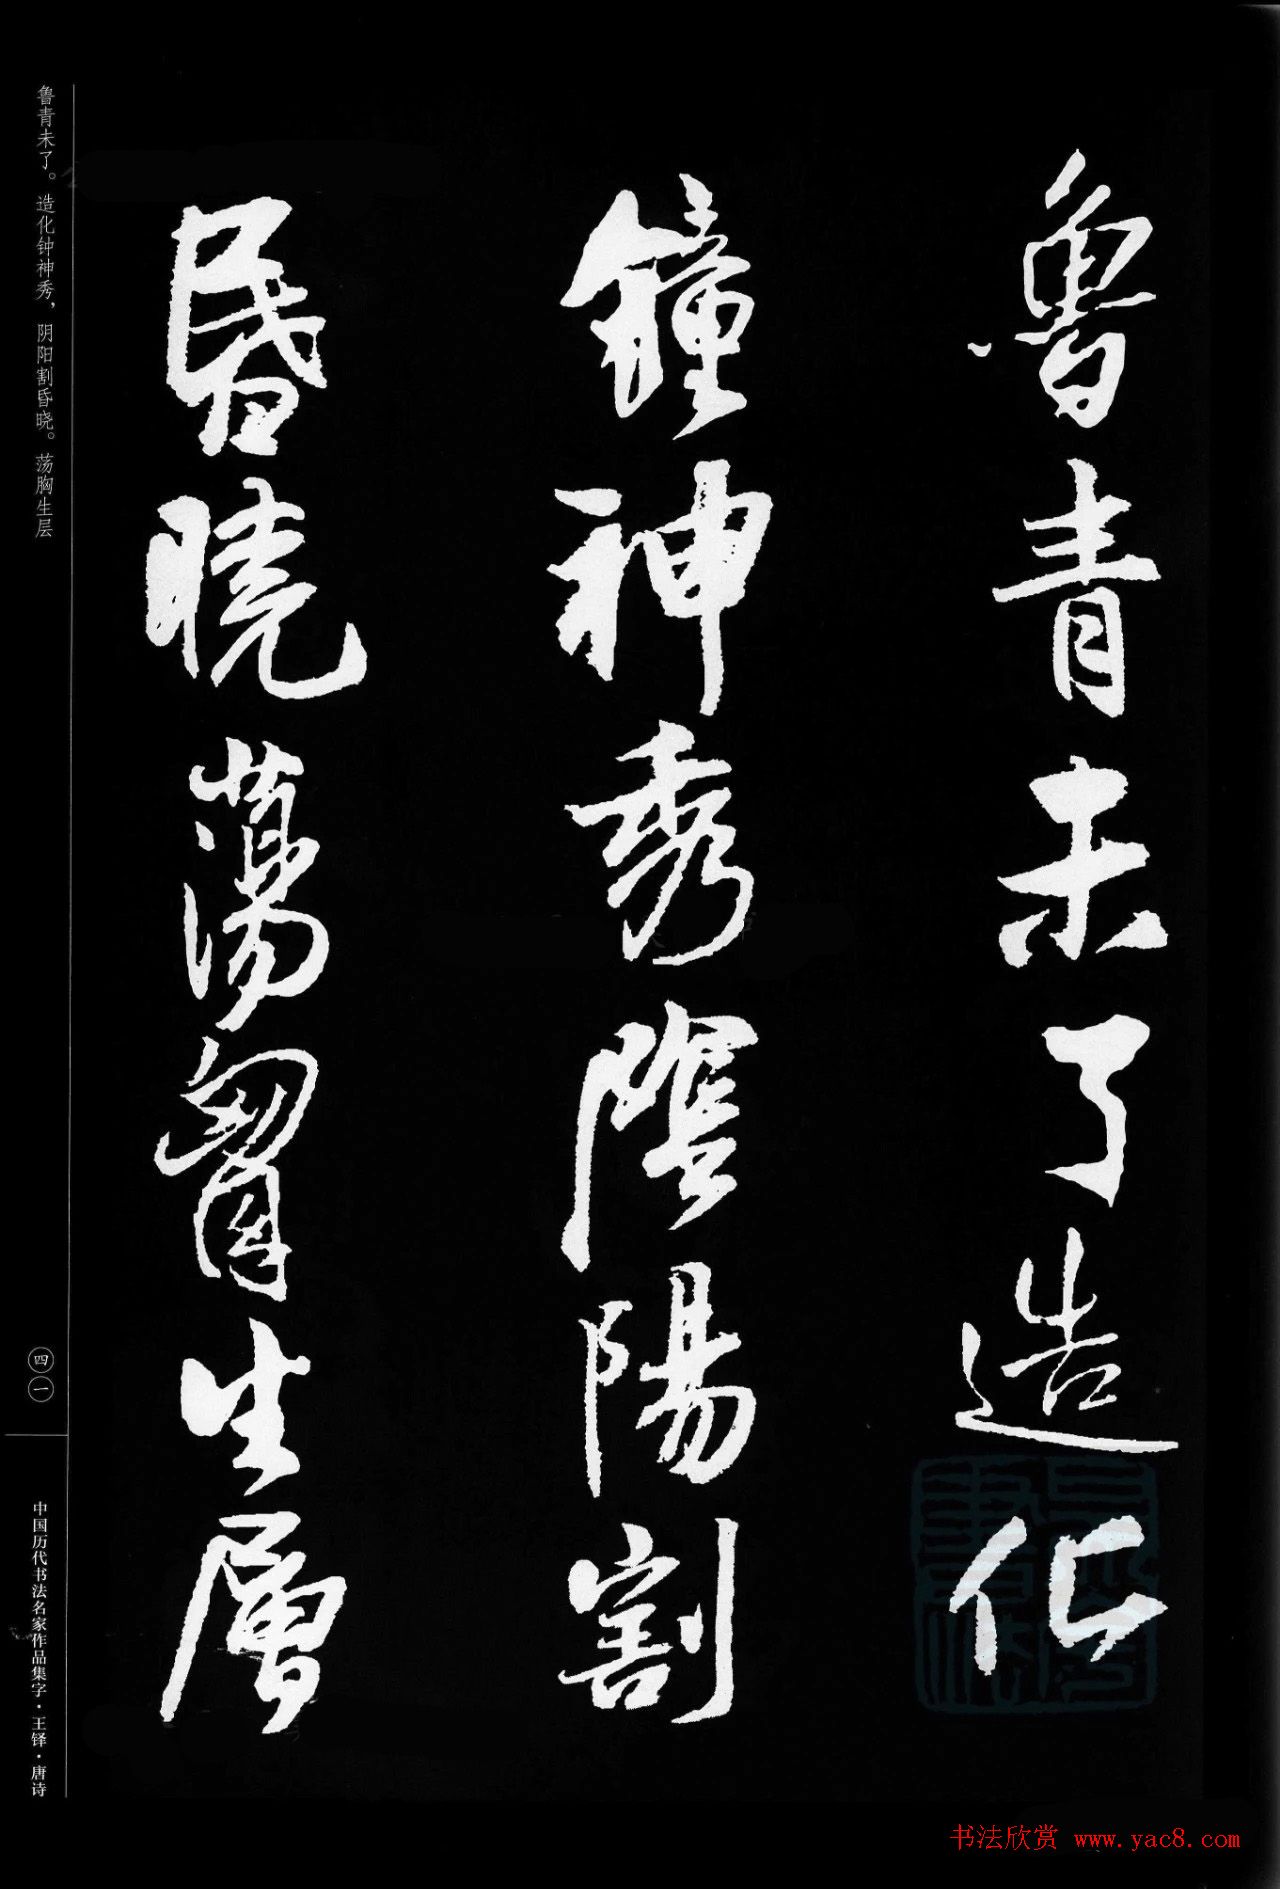 魯青未了造化
鐘神秀陰陽割
昏曉蕩胷生層
鲁青未了。造化钟神秀，阴阳割昏晓。荡胸生层
四一
中国历代书法名家作品集字·王铎·唐诗
书法欣赏 www.yac8.com